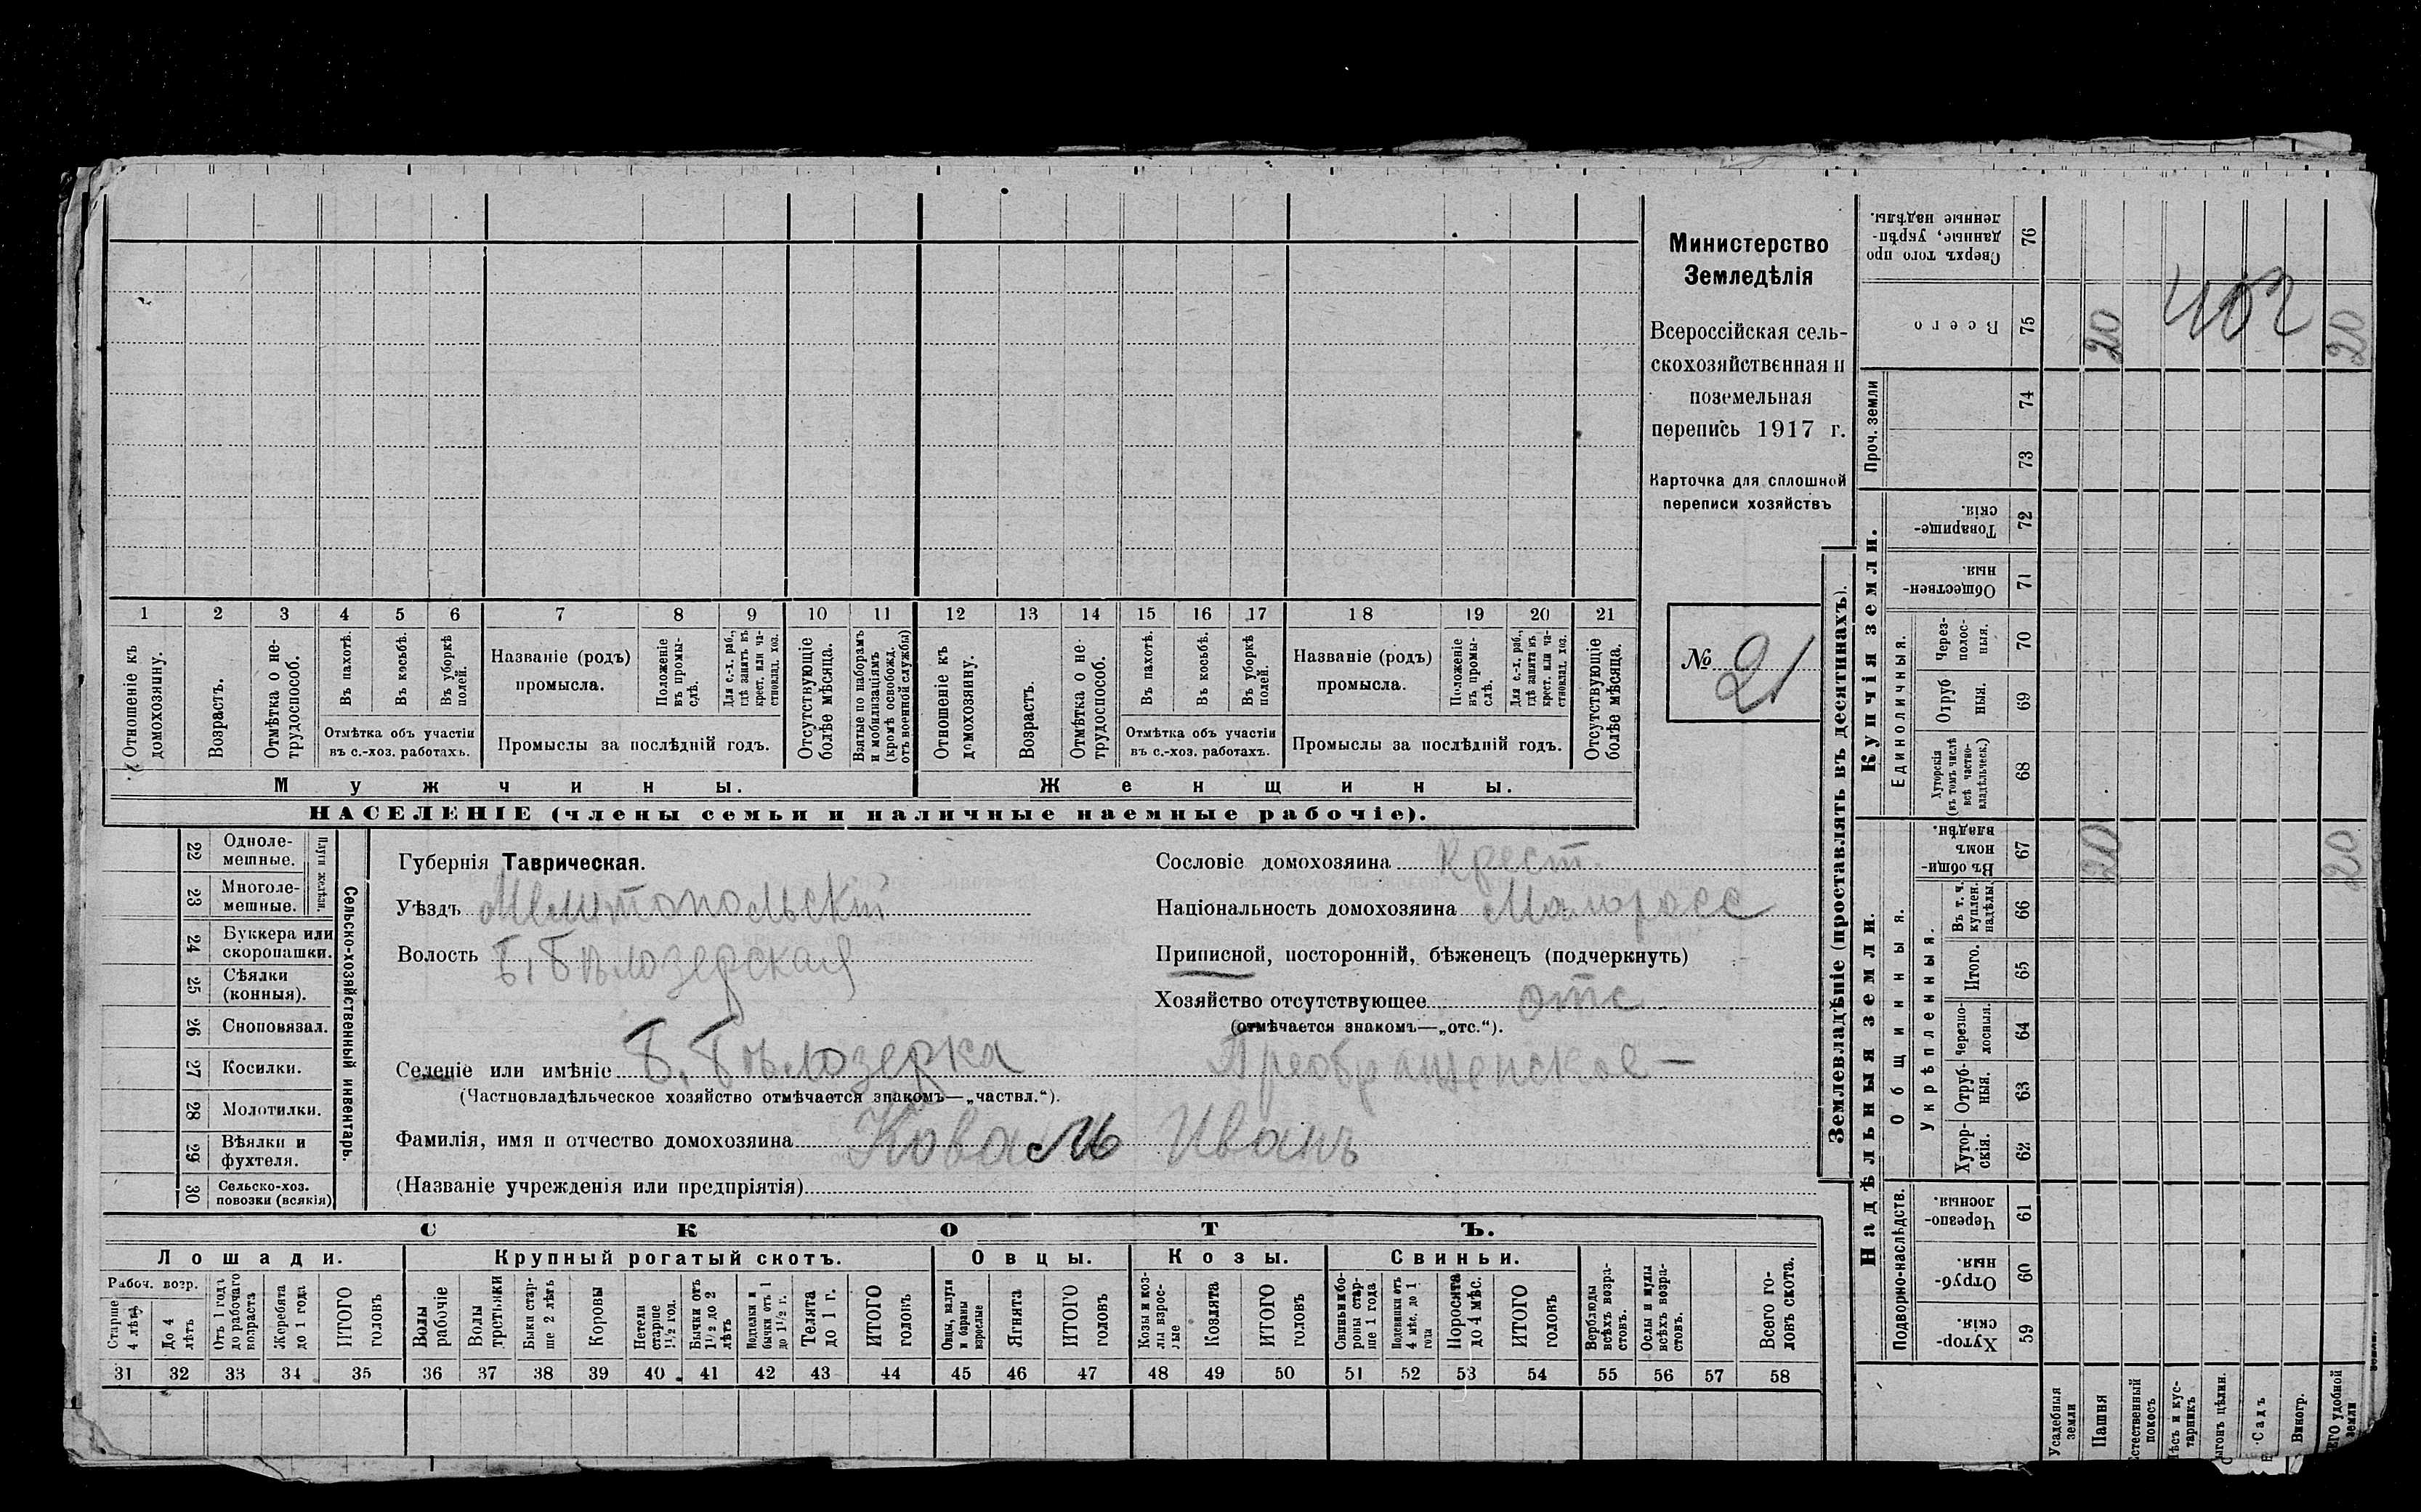 1 2 3 4 5 6 7 8 9 10 11 12 13 14 15 16 17 18 19 20 21
Отношеніе къ домохозяину.
Возрастъ.
Отмѣтка о нетрудоспособ.
Въ пахотѣ.
Въ косьбѣ.
Въ уборкѣ полей.
Отмѣтка объ участіи
въ с.-хоз. работахъ.
Названіе (родъ)
промысла.
Положеніе въ промыслѣ.
Для с.-х. раб., гдѣ занятъ въ крест. или частновлад. хоз.
Промыслы за послѣдній годъ.
Отсутствующіе болѣе мѣсяца.
Взятые по наборамъ и мобилизаціямъ (кромѣ освобожд. отъ военной службы)
Отношеніе къ домохозяину.
Возрастъ.
Отмѣтка о нетрудоспособ.
Въ пахотѣ.
Въ косьбѣ.
Въ уборкѣ полей.
Отмѣтка объ участіи
въ с.-хоз. работахъ.
Названіе (родъ)
промысла.
Положеніе въ промыслѣ.
Для с.-х. раб., гдѣ занята въ крест. или частновлад. хоз.
Промыслы за послѣдній годъ.
Отсутствующіе болѣе мѣсяца.
Мужчины. Женщины.
НАСЕЛЕНІЕ (члены семьи и наличные наемные рабочіе).
Министерство
Земледѣлія
Всероссійская сель-
скохозяйственная и
поземельная
перепись 1917 г.
Карточка для сплошной
переписи хозяйствъ
№ 21
22 Одноле-
мешные.
23 Многоле-
мешные.
Плуги желѣзн.
24 Буккера или
скоропашки.
25 Сѣялки
(конныя).
26 Сноповязал.
27 Косилки.
28 Молотилки.
29 Вѣялки и
фухтеля.
30 Сельско-хоз.
повозки (всякія)
Сельско-хозяйственный инвентарь.
Губернія Таврическая.
Уѣздъ Мелитопольскій
Волость Б. Бѣлозерская
Селеніе или имѣніе Б. Бѣлозерка Преображенское
(Частновладѣльческое хозяйство отмѣчается знакомъ—„частвл.“).
Фамилія, имя и отчество домохозяина Коваль Иванъ
(Названіе учрежденія или предпріятія)
Сословіе домохозяина крест.
Національность домохозяина Малоросс
Приписной, посторонній, бѣженецъ (подчеркнуть)
Хозяйство отсутствующее отс
(отмѣчается знакомъ—„отс.“).
СКОТЪ.
Лошади. Крупный рогатый скотъ. Овцы. Козы. Свиньи.
Рабоч. возр.
Старше 4 лѣтъ
До 4 лѣтъ
Отъ 1 года до рабочаго возраста
Жеребята до 1 года
ИТОГО головъ
Волы рабочіе
Волы третьяки
Быки старше 2 лѣтъ
Коровы
Нетели старше 1½ год.
Бычки отъ 1½ до 2 лѣтъ
Подтелки и бычки отъ 1 до 1½ г.
Телята до 1 г.
ИТОГО головъ
Овцы, валухи и бараны взрослые
Ягнята
ИТОГО головъ
Козы и козлы взрослые
Козлята
ИТОГО головъ
Свиньи и бороны старше 1 года
Подсвинки отъ 4 мѣс. до 1 года
Поросята до 4 мѣс.
ИТОГО головъ
Верблюды всѣхъ возрастовъ.
Ослы и мулы всѣхъ возрастовъ.
Всего головъ скота.
31 32 33 34 35 36 37 38 39 40 41 42 43 44 45 46 47 48 49 50 51 52 53 54 55 56 57 58
Землевладѣніе (проставлять въ десятинахъ).
Надѣльныя земли.
Купчія земли.
Проч. земли
Подворно-наслѣдств.
Общинныя.
Укрѣпленныя.
Единоличныя.
Хуторскія. 59
Отрубныя. 60
Черезполосныя. 61
Хуторскія. 62
Отрубныя. 63
Черезполосныя. 64
Итого. 65
Въ т. ч. куплен. надѣлы. 66
Въ общинномъ владѣн. 67
Хуторскія (въ томъ числѣ всѣ частновладѣльческ.) 68
Отрубныя. 69
Черезполосныя. 70
Общественныя. 71
Товарищескія. 72
73
74
Всего 75
Сверхъ того проданные, укрѣпленные надѣлы. 76
20 402 20
20 20
Усадебныя земли
Пашня
Естественный покосъ
Лѣсъ и кустарникъ
Выгонъ цѣлин.
Садъ
Виногр.